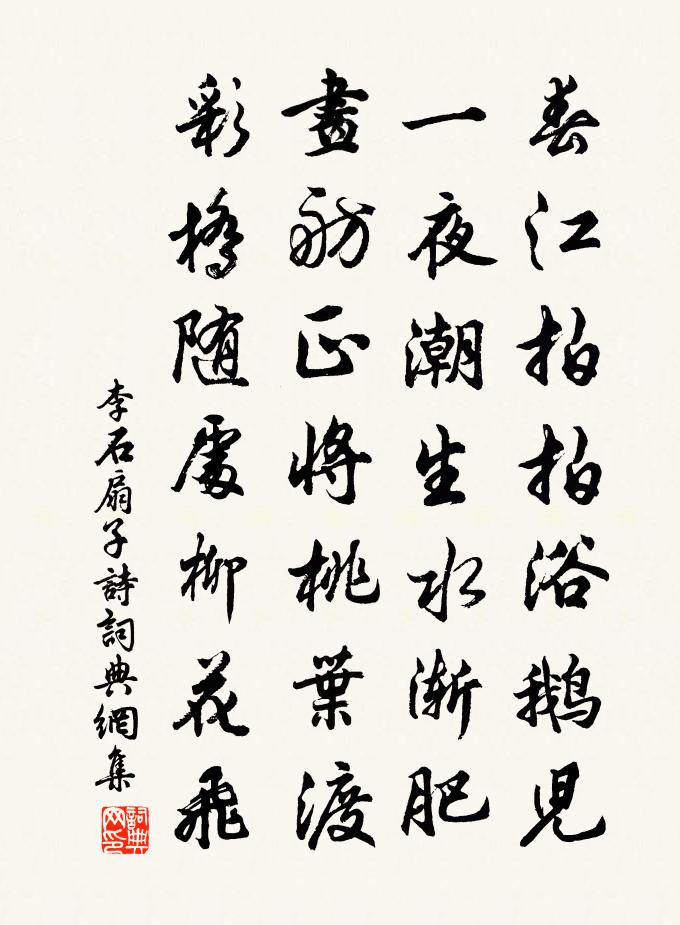 春江拍拍浴鵝兒
一夜潮生水渐肥
畫舫正將桃葉渡
彩橋随處柳花飛
李石扇子詩詞典網集
詞典网印